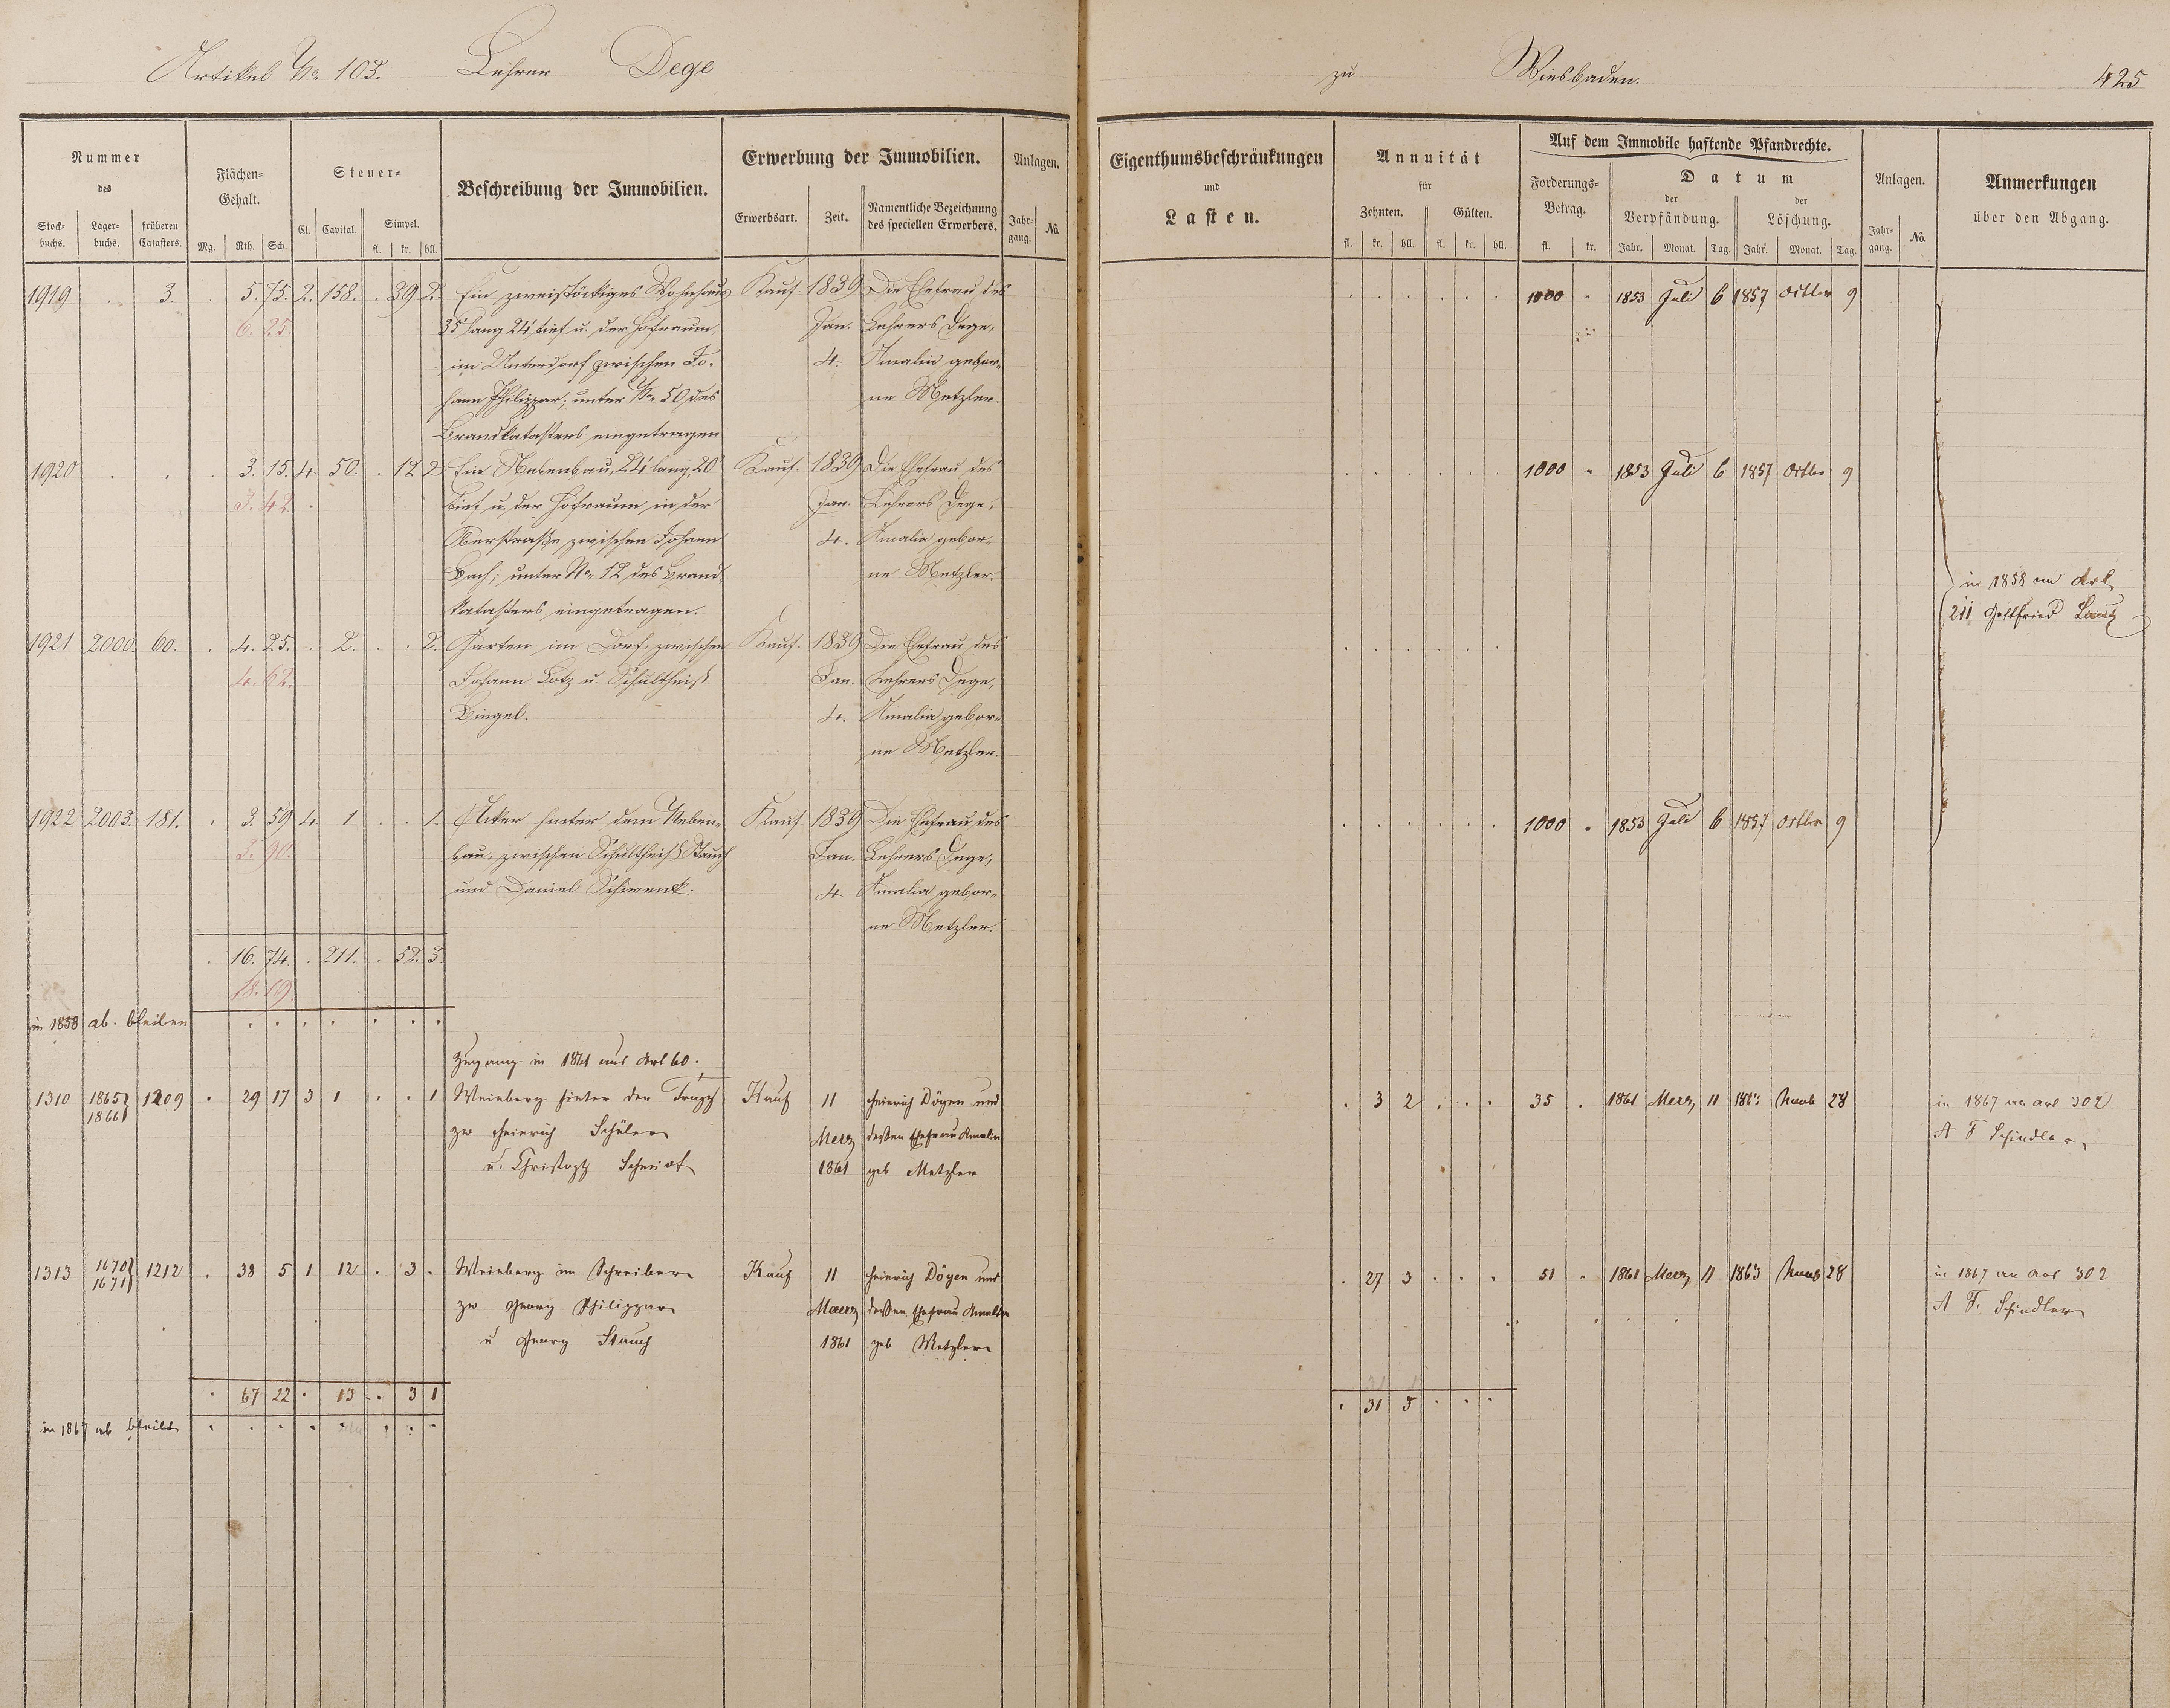 Artikel No. 103. Lehrer Dege
zu Wiesbaden. 425
Nummer des
Stock-buchs. Lager-buchs. früheren Catasters.
Flächen-Gehalt.
Mg. Rth. Sch.
Steuer-
Cl. Capital. Simpel.
fl. kr. hll.
Beschreibung der Immobilien.
Erwerbung der Immobilien.
Erwerbsart. Zeit. Namentliche Bezeichnung des speciellen Erwerbers.
Anlagen.
Jahr-gang. No.
Eigenthumsbeschränkungen
und
Lasten.
Annuität
für
Zehnten. Gülten.
fl. kr. hll. fl. kr. hll.
Auf dem Immobile haftende Pfandrechte.
Forderungs-Betrag.
fl. kr.
Datum
der Verpfändung. der Löschung.
Jahr. Monat. Tag. Jahr. Monat. Tag.
Anlagen.
Jahr-gang. No.
Anmerkungen
über den Abgang.
1919 . 3. . 5. 75. 2. 158. . 39 2. Ein zweistöckiges Wohnhaus Kauf 1839 Die Ehefrau des 1000 " 1853 Juli 6 1857 Octbr 9
6. 25. 35' lang 24' tief u. der Hofraum Jan. Lehrers Dege,
im Unterdorf zwischen Jo- 4. Amalia gebor-
hann Philippar; unter No. 50 des ne Metzler.
Brandkatasters eingetragen
1920 . . . 3. 15. 4. 50. . 12 2 Ein Nebenbau, 24' lang, 20' Kauf. 1839 Die Ehefrau des 1000 " 1853 Juli 6 1857 Octbr 9
3. 42. tief u. der Hofraum in der Jan. Lehrers Dege,
Oberstraße zwischen Johann 4. Amalia gebor-
Bach; unter No. 12 des Brand ne Metzler.
katasters eingetragen.
in 1858 an Art
211 Gottfried Lautz
1921 2000. 60. . 4. 25. . 2. . . 2. Garten im Dorf, zwischen Kauf. 1839 Die Ehefrau des
4. 62. Johann Lotz u. Schultheiß Jan. Lehrers Dege,
Bingel. 4. Amalia gebor-
ne Metzler.
1922 2003. 181. . 3. 59 4. 1 . . 1. Acker hinter dem Neben- Kauf 1839 Die Ehefrau des 1000 " 1853 Juli 6 1857 Octbr 9
3. 90. bau, zwischen Schultheiß Stauch Jan. Lehrers Dege,
und Daniel Schwenk. 4. Amalia gebor-
ne Metzler.
. 16. 74. . 211. . 52. 3.
18. 19.
in 1858 ab. bleiben . . . . . . .
Zugang in 1861 aus Art 60.
1310 1865 1866 1209 . 29 17 3 1 . . 1 Weinberg hinter der Kauf 11 Heinrich Dögen und . 3 2 . . . 35 . 1861 Merz 11 28 in 1867 an Art 302
zw Heinrich Schüler Merz dessen Ehefrau Amalia A F Schindler
u. Christoph 1861 geb Metzler
1313 1670 1671 1212 . 38 5 1 12 . 3 . Weinberg im Schreiber Kauf 11 Heinrich Dögen und . 27 3 . . . 51 " 1861 Merz 11 1863 28 in 1867 an Art 302
zw Georg Philippar Maerz dessen Ehefrau Amalia A F. Schindler
u Georg Stauch 1861 geb Metzler
. 67 22 . 13 . 3 1
. 31 5 . . .
in 1867 ab bleibt . . . . . . . .